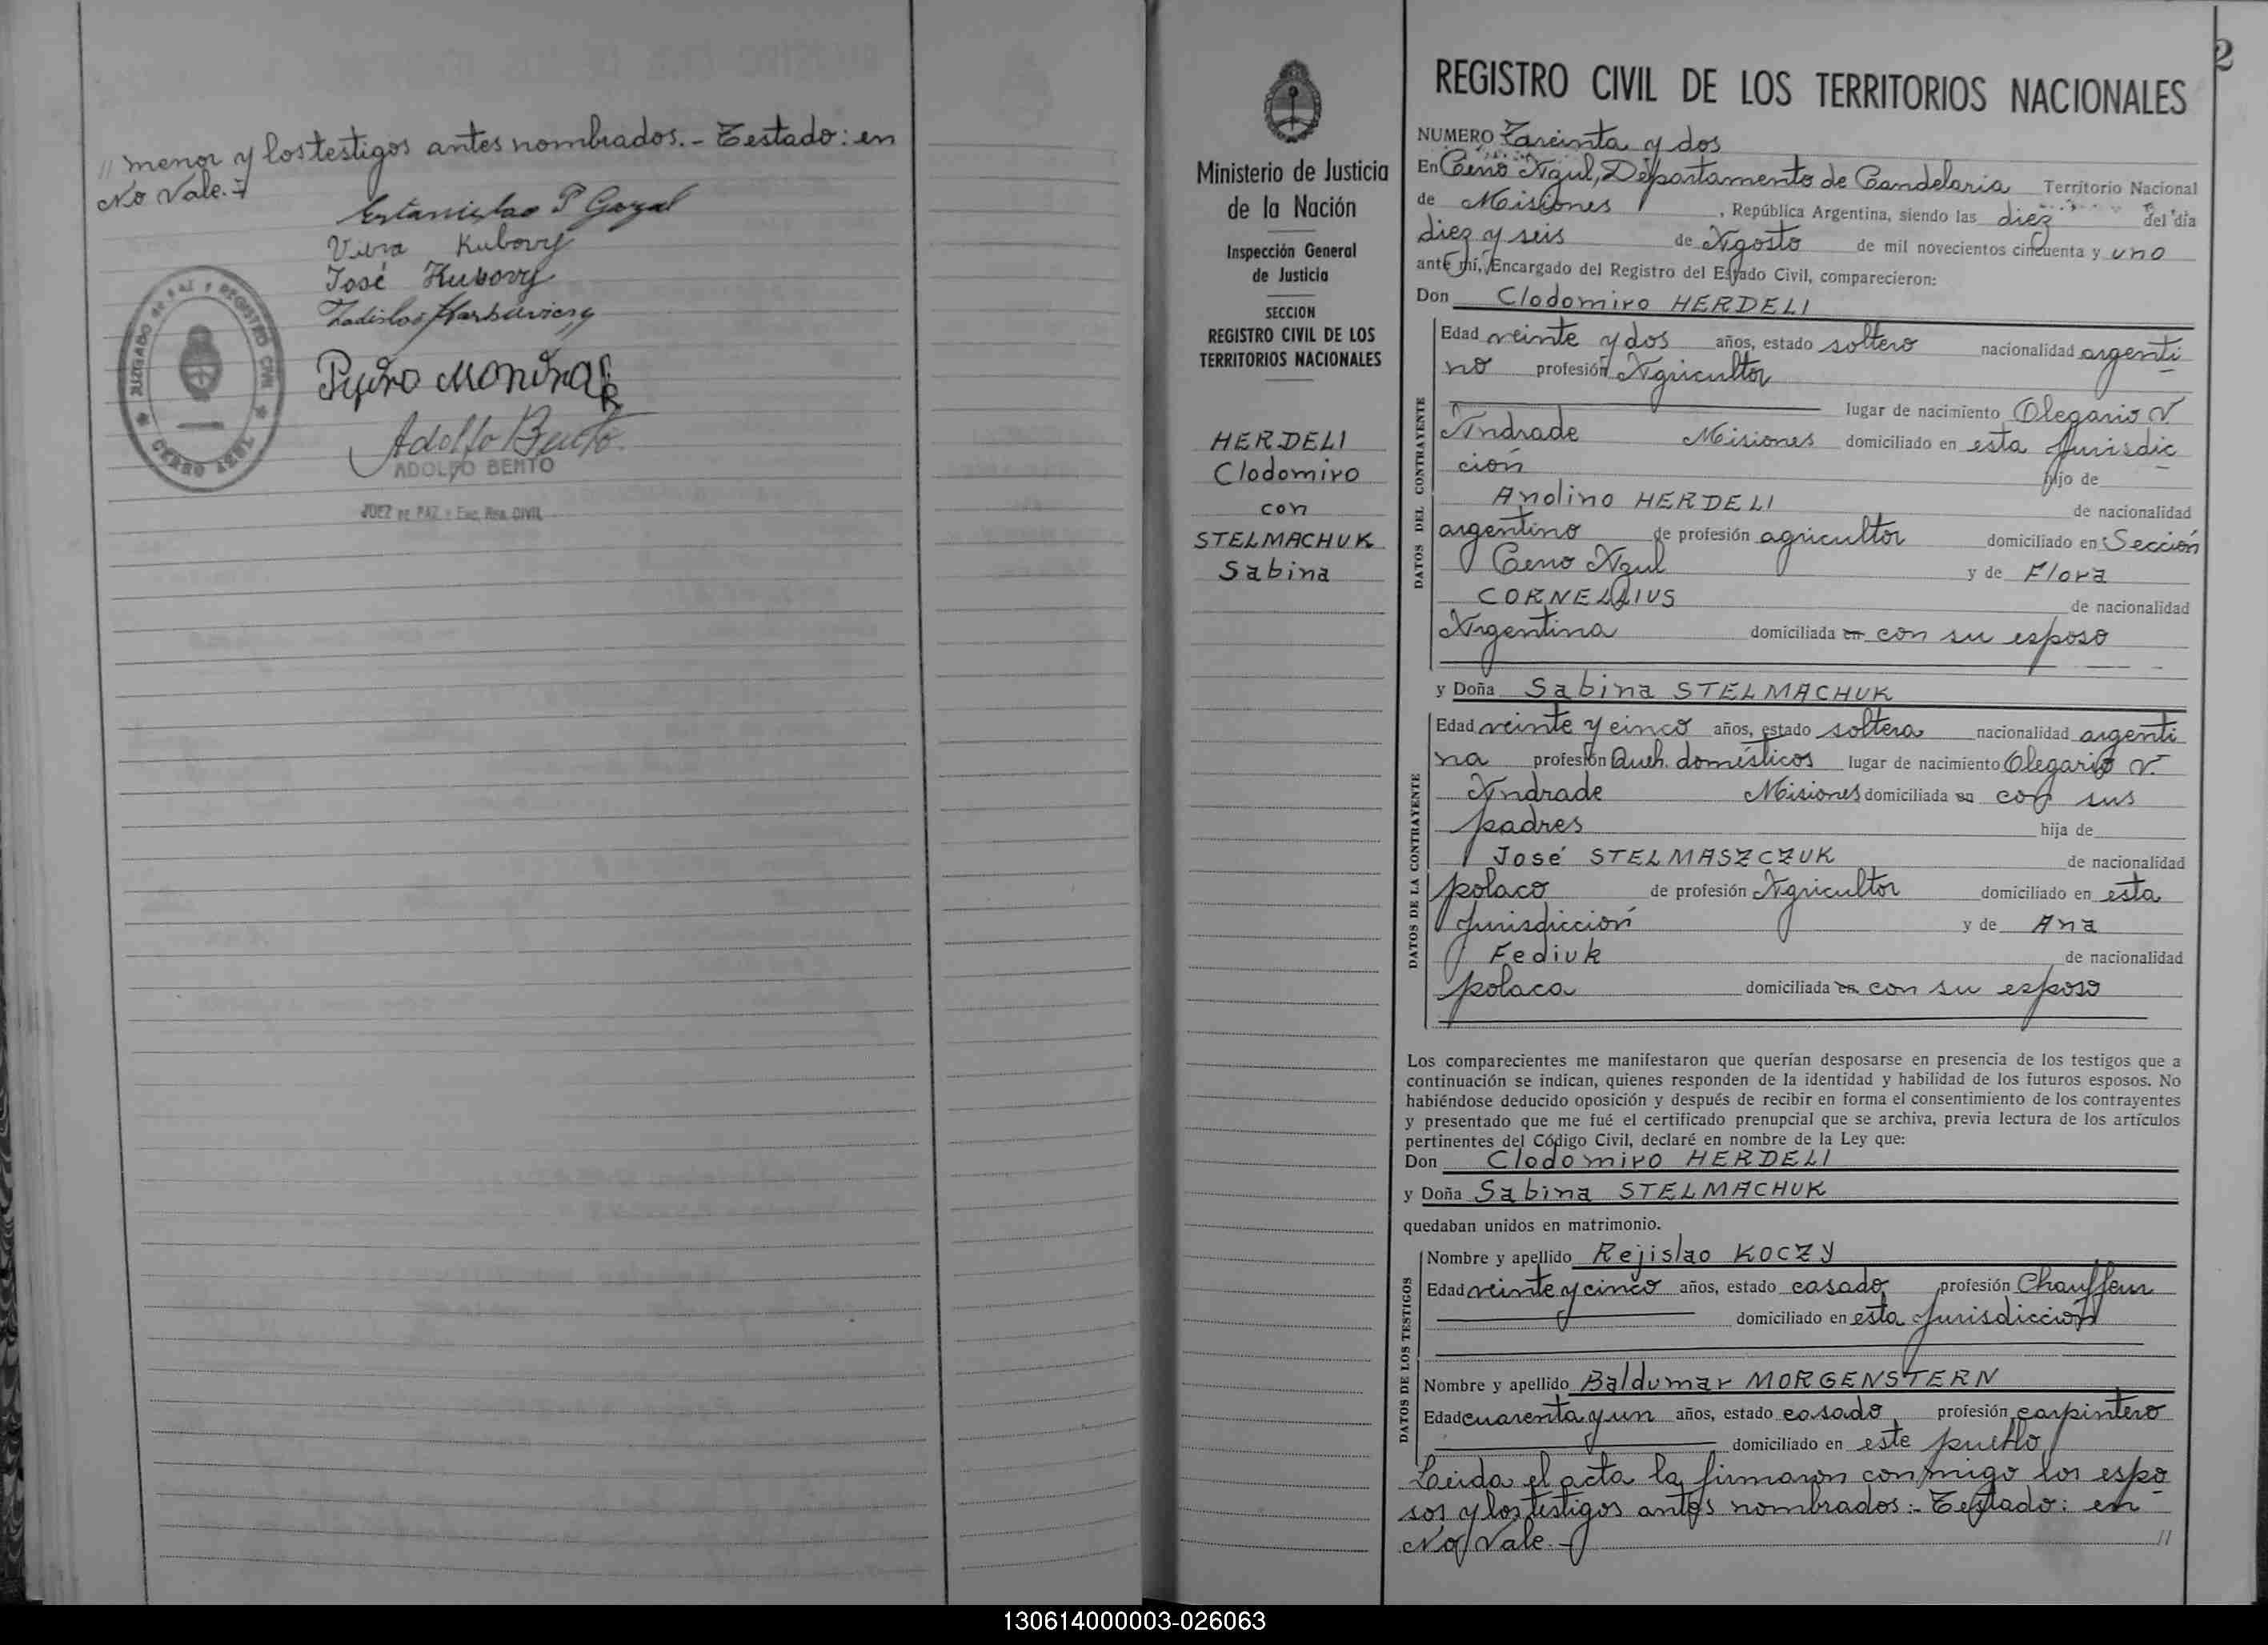 // menor y los testigos antes nombrados.- Testado: en
No Vale.-
Estanislao P Gozal
Viera Kubovy
José Kubovy
Ladislao
Pedro
Adolfo Bento
ADOLFO BENTO
JUEZ DE PAZ y Enc. Reg. CIVIL
JUZGADO DE PAZ Y REGISTRO CIVIL
CERRO AZUL
2
Ministerio de Justicia
de la Nación
Inspección General
de Justicia
SECCION
REGISTRO CIVIL DE LOS
TERRITORIOS NACIONALES
HERDELI
Clodomiro
con
STELMACHUK
Sabina
REGISTRO CIVIL DE LOS TERRITORIOS NACIONALES
NUMERO Treinta y dos
En Cerro Azul, Departamento de Candelaria Territorio Nacional
de Misiones, República Argentina, siendo las diez del día
diez y seis de Agosto de mil novecientos cincuenta y uno
ante mí, Encargado del Registro del Estado Civil, comparecieron:
Don Clodomiro HERDELI
DATOS DEL CONTRAYENTE
Edad veinte y dos años, estado soltero nacionalidad argenti
no profesión Agricultor
lugar de nacimiento Olegario V.
Andrade Misiones domiciliado en esta Jurisdic
ción hijo de
Anolino HERDELI de nacionalidad
argentino de profesión agricultor domiciliado en Sección
Cerro Azul y de Flora
CORNELLIUS de nacionalidad
Argentina domiciliada en con su esposo
y Doña Sabina STELMACHUK
DATOS DE LA CONTRAYENTE
Edad veinte y cinco años, estado soltera nacionalidad argenti
na profesión Queh. domésticos lugar de nacimiento Olegario V.
Andrade Misiones domiciliada en con sus
padres hija de
José STELMASZCZUK de nacionalidad
polaco de profesión Agricultor domiciliado en esta
Jurisdicción y de Ana
Fediuk de nacionalidad
polaca domiciliada en con su esposo
Los comparecientes me manifestaron que querían desposarse en presencia de los testigos que a
continuación se indican, quienes responden de la identidad y habilidad de los futuros esposos. No
habiéndose deducido oposición y después de recibir en forma el consentimiento de los contrayentes
y presentado que me fué el certificado prenupcial que se archiva, previa lectura de los artículos
pertinentes del Código Civil, declaré en nombre de la Ley que:
Don Clodomiro HERDELI
y Doña Sabina STELMACHUK
quedaban unidos en matrimonio.
DATOS DE LOS TESTIGOS
Nombre y apellido Rejislao KOCZY
Edad veinte y cinco años, estado casado profesión Chauffeur
domiciliado en esta Jurisdicción
Nombre y apellido Baldumar MORGENSTERN
Edad cuarenta y un años, estado casado profesión carpintero
domiciliado en este pueblo
Leida el acta la firmaron conmigo los espo
sos y los testigos antes nombrados:- Testado: en
No Vale.- //
130614000003-026063